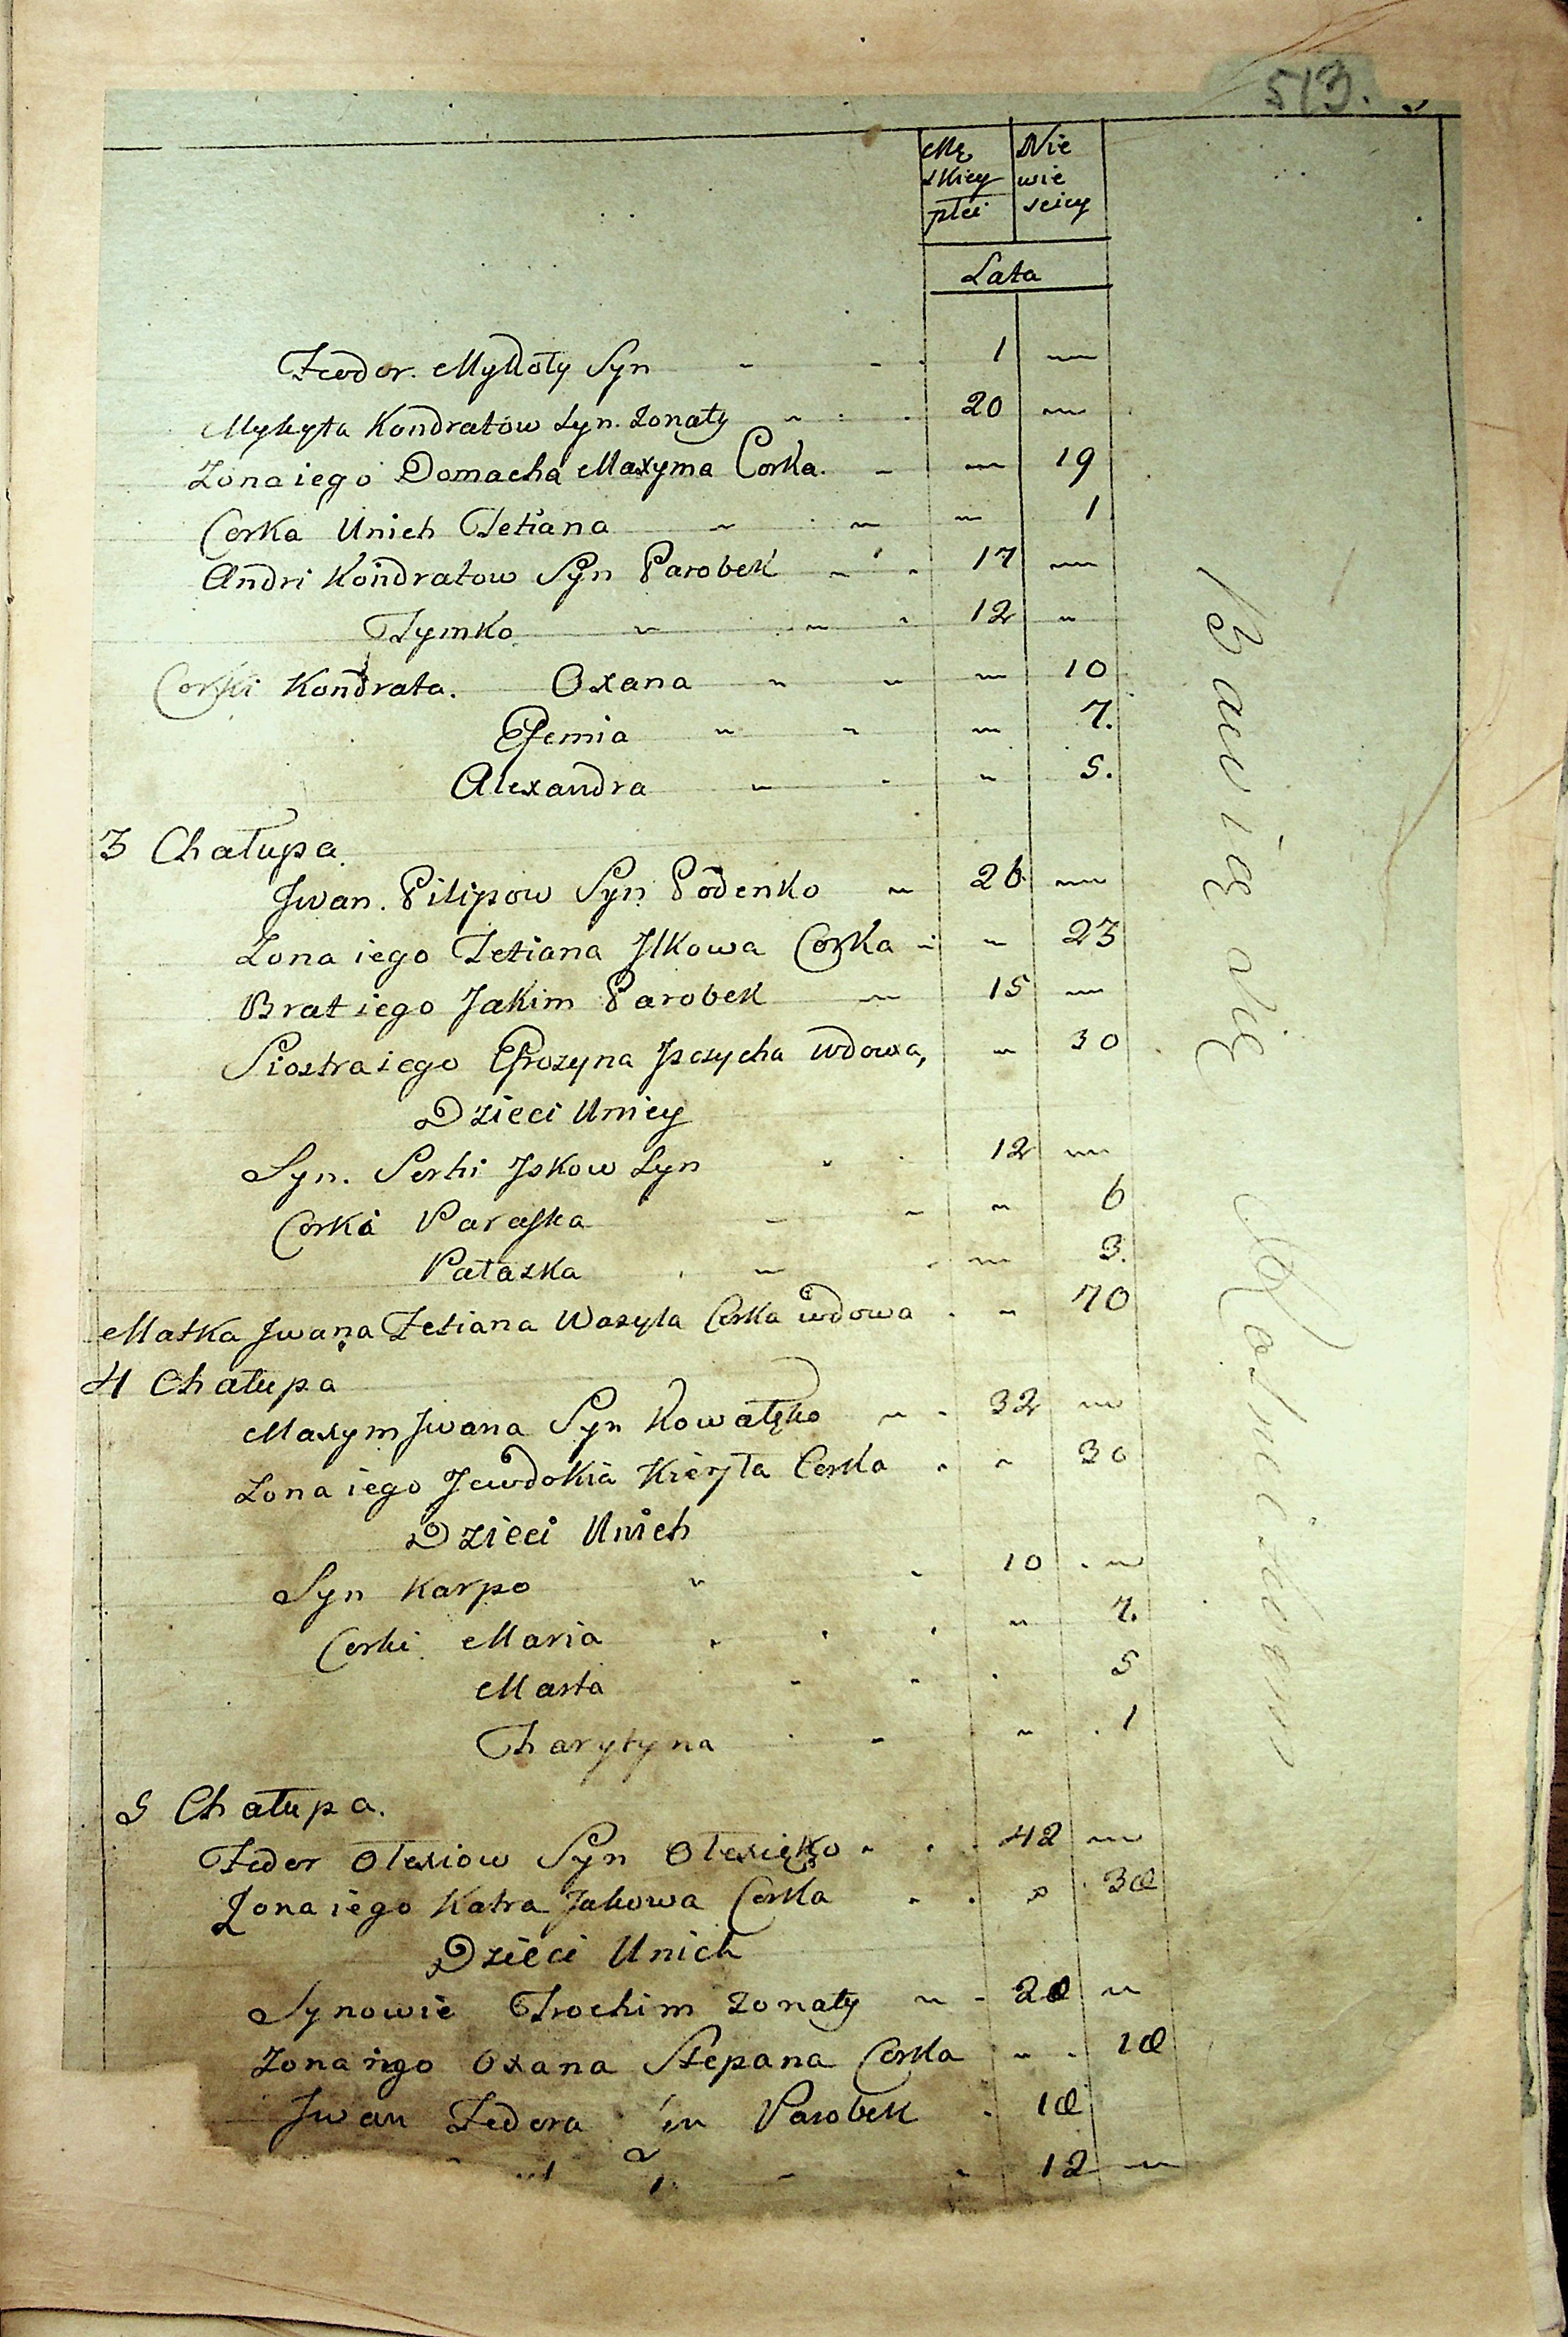 513.
Mę Nie
skiey wie
płci sciey
Lata
Feodor. Mykoły Syn 1
Mykyta Kondratow Syn. Zonaty 20
Zona iego Domacha Maxyma Corka. 19
Corka Unich Tetiana 1
Andri Kondratow Syn Parobek 17
Tymko 12
Corki Kondrata. Oxana 10
Efemia 7.
Alexandra 5.
3 Chałupa.
Jwan. Pilipow Syn Podenko 26
Zona iego Tetiana Jlkowa Corka 23
Brat iego Jakim Parobek 15
Siostra iego Efrozyna wdowa, 30
Dzieci Uniey
Syn. Serhi Jskow Syn 12
Corka Paraska 6
Pałazka 3.
Matka Jwana Tetiana Wasyla Corka wdowa 70
4 Chałupa
Maxym Jwana Syn Kowalęko 32
Zona iego Jewdokia Kieryła Corka 30
Dzieci Unich
Syn Karpo 10
Corki Maria 7.
Marta 5
Charytyna 1
5 Chałupa.
Fedor Olexiow Syn Olexięko 42
Zona iego Katra Jakowa Corka 38
Dzieci Unich
Synowie Trochim zonaty 20
Zona iego Oxana Stepana Corka 18
Jwan Fedora Parobek 18
12
Bawią się